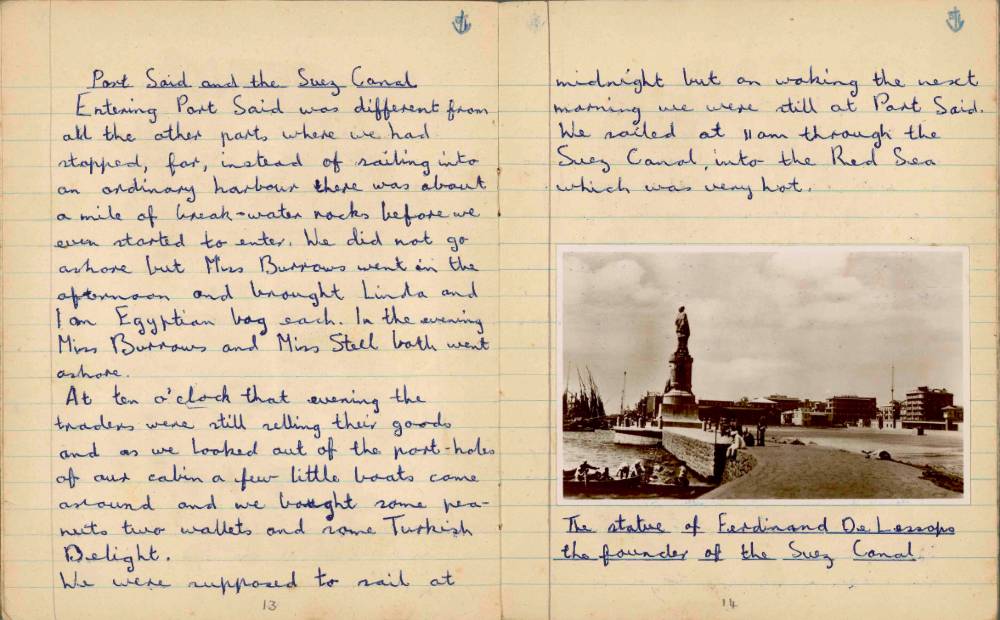 Port Said and the Suez Canal
Entering Port Said was different from
all the other ports where we had
stopped, for, instead of sailing into
an ordinary harbour there was about
a mile of break-water rocks before we
even started to enter. We did not go
ashore but Miss Burrows went in the
afternoon and brought Linda and
I an Egyptian bag each. In the evening
Miss Burrows and Miss Stell both went
ashore.
At ten o'clock that evening the
traders were still selling their goods
and as we looked out of the port-holes
of our cabin a few little boats came
around and we bought some pea-
nuts two wallets and some Turkish
Delight.
We were supposed to sail at
13
midnight but on waking the next
morning we were still at Port Said.
We sailed at 11am through the
Suez Canal, into the Red Sea
which was very hot.
The statue of Ferdinand De Lesseps
the founder of the Suez Canal.
14